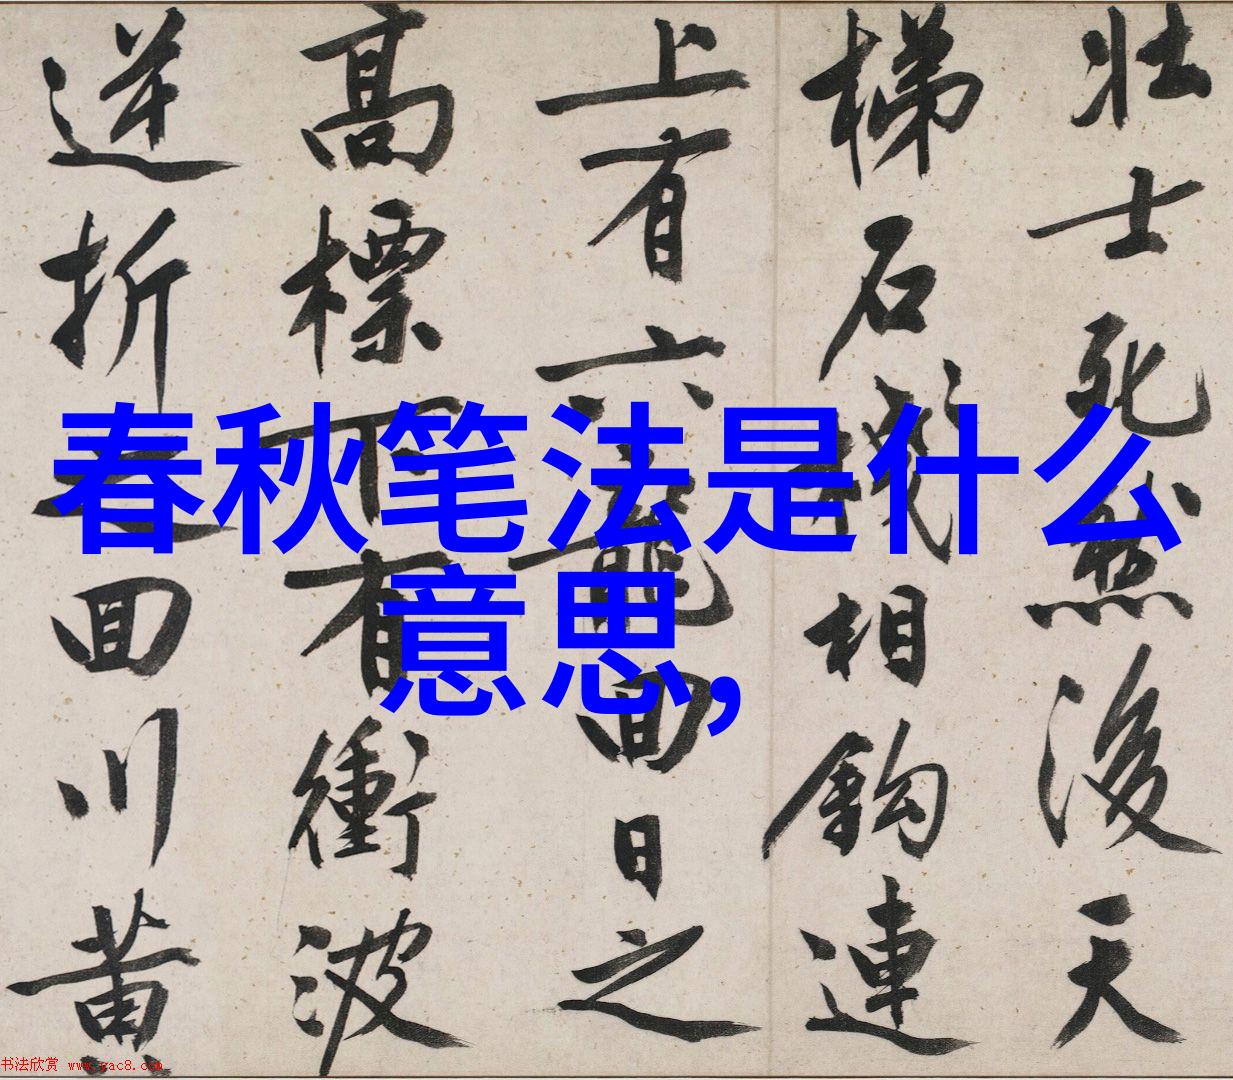 壮士死然後天
梯石棧相鈎連
上有六龍回日之
高標下有衝波
逆折之回川黄
春秋笔法是什么
意思,
书法欣赏 www.yac8.com